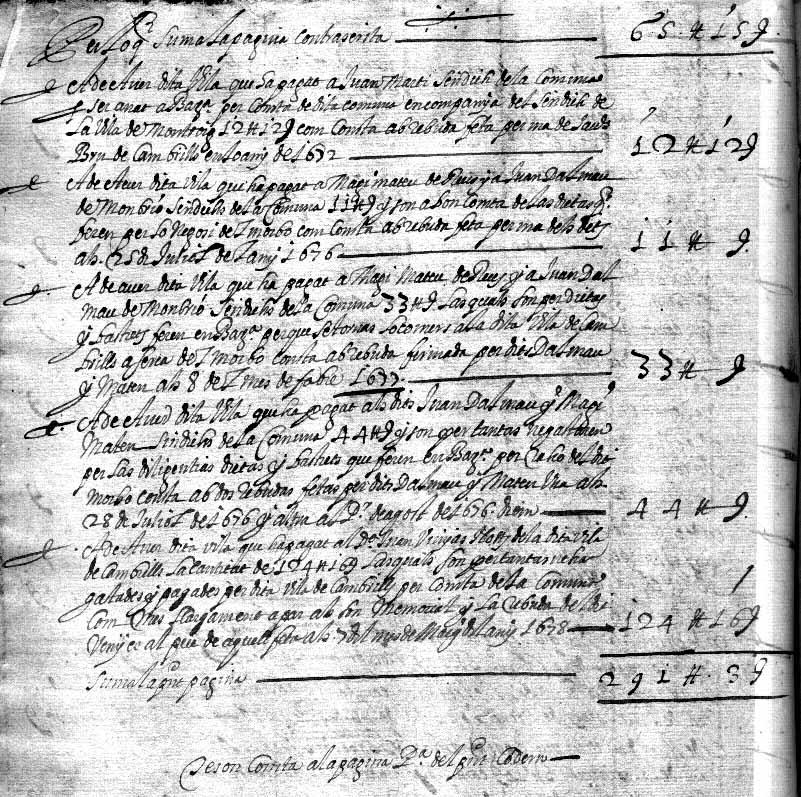 Per lo q. suma la pagina contrascrita — 65 ₶ 15 ₰
A de Aver dita Vila que ha pagat a Juan Marti Sindich de la Comuna
per anar a Barª. per Comta de dita comuna en companyia del Sindich de
la Vila de Montroig 12 ₶ 12 ₰ com Consta ab rebuda feta per ma de
Bru de Cambrils en lo any de 1672 — 12 ₶ 12 ₰
A de Aver dita Vila que ha pagat a Magi Mateu de Reus y a Juan Dalmau
de Monbrió Sindichs de la Comuna 11 ₶ ₰ y son a bon comta de las dietas q.
feren per lo negoci del morbo com Consta ab rebuda feta per ma dels dits
als 25 de Juliol de lany 1676 — 11 ₶ ₰
A de aver dita Vila que ha pagat a Magi Mateu de Reus y a Juan Dal
mau de Monbrió Sindichs de la Comuna 33 ₶ ₰ las quals son per dietas
y bastrets feren en Barª. perque se tornas lo comers a la dita Vila de Cam
brills a serca del morbo consta ab rebuda firmada per dits Dalmau
y Mateu als 8 del mes de 1677 — 33 ₶ ₰
A de Aver dita Vila que ha pagat als dits Juan Dalmau y Magi
Mateu Sindichs de la Comuna 44 ₶ ₰ y son per tantas ne gastaren
per las diligentias dietas y bastrets que feren en Barª. per raho del dit
morbo consta ab dos rebudas fetas per dits Dalmau y Mateu Una als
28 de Juliol de 1676 y altra al Pr. de agost de 1676. diem — 44 ₶ ₰
A de Aver dita vila que ha pagat al Dr. Juan de la dita vila
de Cambrills la cantitat de 124 ₶ 16 ₰ las quals son per tantas ne ha
gastades y pagades per dita vila de Cambrills per Comta de la Comuna
com llargament apar ab son Memorial y la rebuda del dit
al peu de aquell feta als 7 del mes de Maig del any 1678 — 124 ₶ 16 ₰
Suma la pnt pagina — 291 ₶ 3 ₰
Se son Comta a la pagina Pª. del pnt Codern —